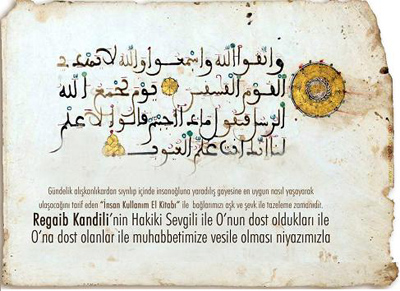 واتقوا الله واسمعوا والله لا يهدى
القوم الفسقين يوم يجمع الله
الرسل فيقول ماذا اجبتم قالوا لا علم
لنا انك انت علم الغيوب
Gündelik alışkanlıkardan sıyrılıp içinde insanoğluna yaradılış gayesine en uygun nasıl yaşayarak
ulaşocağını tarif eden “İnsan Kullanım El Kitabı” ile bağlarımızı aşk ve şevk ile tazeleme zamanıdır.
Regaib Kandili’nin Hakiki Sevgili ile O’nun dost oldukları ile
O’na dost olanlar ile muhabbetimize vesile olması niyazımızla